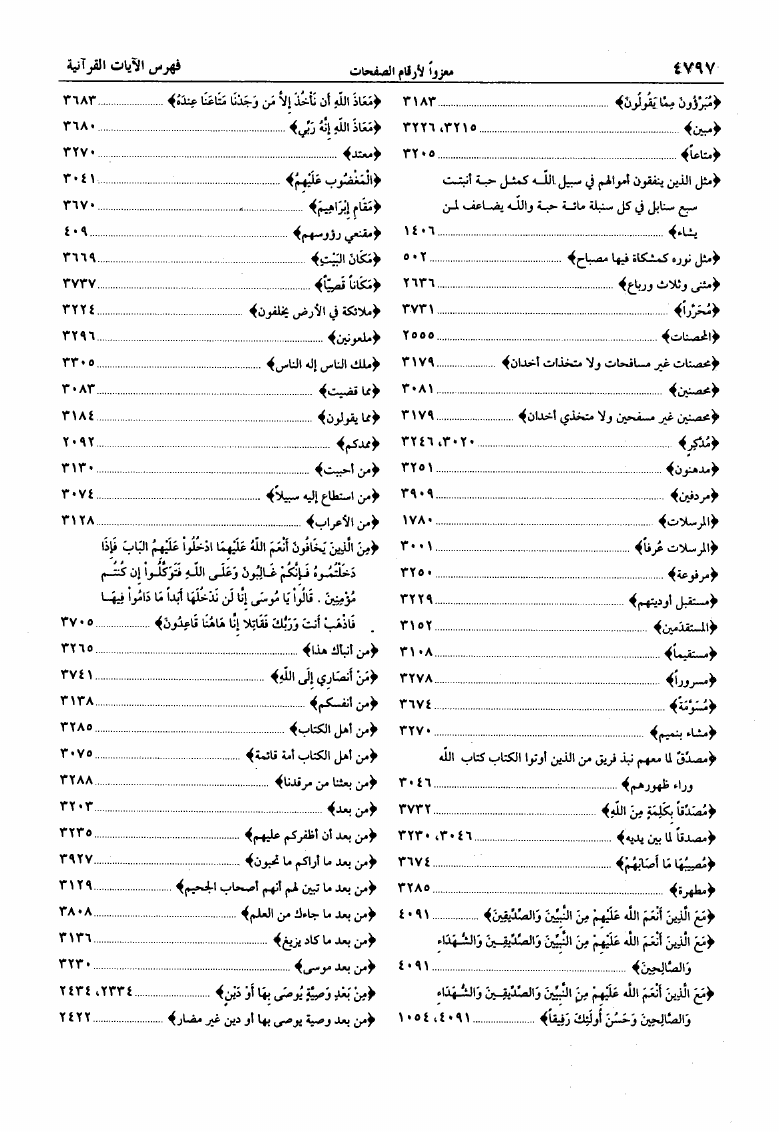 ٤٧٩٧ معزواً لأرقام الصفحات فهرس الآيات القرآنية
﴿مُبَرَّؤُونَ مِمَّا يَقُولُونَ﴾ ٣١٨٣
﴿مبين﴾ ٣٢١٥، ٣٢٢٦
﴿متاعاً﴾ ٣٢٠٥
﴿مثل الذين ينفقون أموالهم في سبيل اللّه كمثل حبة أنبتت
سبع سنابل في كل سنبلة مائة حبة واللّه يضاعف لمن
يشاء﴾ ١٤٠٦
﴿مثل نوره كمشكاة فيها مصباح﴾ ٥٠٢
﴿مثنى وثلاث ورباع﴾ ٢٦٣٦
﴿مُحَرَّراً﴾ ٣٧٣١
﴿المحصنات﴾ ٢٥٥٥
﴿محصنات غير مسافحات ولا متخذات أخدان﴾ ٣١٧٩
﴿محصنين﴾ ٣٠٨١
﴿محصنين غير مسفحين ولا متخذي أخدان﴾ ٣١٧٩
﴿مُدَّكِرٍ﴾ ٣٠٢٠، ٣٢٤٦
﴿مدهنون﴾ ٣٢٥١
﴿مردفين﴾ ٣٩٠٩
﴿المرسلات﴾ ١٧٨٠
﴿المرسلات عُرفاً﴾ ٣٠٠١
﴿مرفوعة﴾ ٣٢٥٠
﴿مستقبل أوديتهم﴾ ٣٢٢٩
﴿المستقدَمين﴾ ٣١٥٢
﴿مستقيماً﴾ ٣١٠٨
﴿مسروراً﴾ ٣٢٧٨
﴿مُسَوَّمَةً﴾ ٣٦٧٤
﴿مشاء بنميم﴾ ٣٢٧٠
﴿مصدّقٌ لما معهم نبذ فريق من الذين أوتوا الكتاب كتاب اللّه
وراء ظهورهم﴾ ٣٠٤٦
﴿مُصَدّقاً بِكَلِمَةٍ مِنَ اللَّهِ﴾ ٣٧٣٢
﴿مصدقاً لما بين يديه﴾ ٣٠٤٦، ٣٢٣٠
﴿مُصِيبُهَا مَا أَصَابَهُمْ﴾ ٣٦٧٤
﴿مطهرة﴾ ٣٢٨٥
﴿مَعَ الَّذِينَ أَنْعَمَ اللَّه عَلَيْهِمْ مِنَ النَّبِيِّينَ وَالصِّدِّيقِينَ﴾ ٤٠٩١
﴿مَعَ الَّذِينَ أَنْعَمَ اللَّه عَلَيْهِمْ مِنَ النَّبِيِّينَ وَالصِّدِّيقِينَ وَالشُّهَدَاءِ
وَالصالِحِينَ﴾ ٤٠٩١
﴿مَعَ الَّذِينَ أَنْعَمَ اللَّه عَلَيْهِمْ مِنَ النَّبِيِّينَ وَالصِّدِّيقِينَ وَالشُّهَدَاءِ
وَالصَّالِحِينَ وَحَسُنَ أُولَئِكَ رَفِيقاً﴾ ٤٠٩١، ١٠٥٤
﴿مَعَاذَ اللَّهِ أَن نَأْخُذَ إِلاَّ مَن وَجَدْنَا مَتَاعَنَا عِندَهُ﴾ ٣٦٨٣
﴿مَعَاذَ اللَّهِ إِنَّهُ رَبِّي﴾ ٣٦٨٠
﴿معتد﴾ ٣٢٧٠
﴿الْمَغْضُوبِ عَلَيْهِمْ﴾ ٣٠٤١
﴿مَقَامِ إِبْرَاهِيمَ﴾ ٣٦٧٠
﴿مقنعي رؤوسهم﴾ ٤٠٩
﴿مَكَانَ الْبَيْتِ﴾ ٣٦٦٩
﴿مَكَاناً قَصِيّاً﴾ ٣٧٣٧
﴿ملائكة في الأرض يخلفون﴾ ٣٢٢٤
﴿ملعونين﴾ ٣٢٩٦
﴿ملك الناس إله الناس﴾ ٣٣٠٥
﴿مما قضيت﴾ ٣٠٨٣
﴿مما يقولون﴾ ٣١٨٤
﴿ممدكم﴾ ٢٠٩٢
﴿من أحببت﴾ ٣١٣٠
﴿من استطاع إليه سبيلاً﴾ ٣٠٧٤
﴿من الأعراب﴾ ٣١٢٨
﴿مِنَ الَّذِينَ يَخَافُونَ أَنْعَمَ اللَّهُ عَلَيْهِمَا ادْخُلُواْ عَلَيْهِمُ الْبَابَ فَإِذَا
دَخَلْتُمُوهُ فَإِنَّكُمْ غَالِبُونَ وَعَلَى اللَّهِ فَتَوَكَّلُواْ إِن كُنتُم
مُّؤْمِنِينَ . قَالُواْ يَا مُوسَى إِنَّا لَن نَدْخُلَهَا أَبَداً مَا دَامُواْ فِيهَا
فَاذْهَبْ أَنتَ وَرَبُّكَ فَقَاتِلا إِنَّا هَاهُنَا قَاعِدُونَ﴾ ٣٧٠٥
﴿من أنبأك هذا﴾ ٣٢٦٥
﴿مَنْ أَنصَارِي إِلَى اللَّهِ﴾ ٣٧٤١
﴿من أنفسكم﴾ ٣١٣٨
﴿من أهل الكتاب﴾ ٣٢٨٥
﴿من أهل الكتاب أمة قائمة﴾ ٣٠٧٥
﴿من بعثنا من مرقدنا﴾ ٣٢٨٨
﴿من بعد﴾ ٣٢٠٣
﴿من بعد أن أظفركم عليهم﴾ ٣٢٣٥
﴿من بعد ما أراكم ما تحبون﴾ ٣٩٢٧
﴿من بعد ما تبين لهم أنهم أصحاب الجحيم﴾ ٣١٢٩
﴿من بعد ما جاءك من العلم﴾ ٣٨٠٨
﴿من بعد ما كاد يزيغ﴾ ٣١٣٦
﴿من بعد موسى﴾ ٣٢٣٠
﴿مِنْ بَعْدِ وَصِيَّةٍ يُوصَى بِهَا أَوْ دَيْنٍ﴾ ٢٣٣٤، ٢٤٣٤
﴿من بعد وصية يوصى بها أو دين غير مضار﴾ ٢٤٢٢